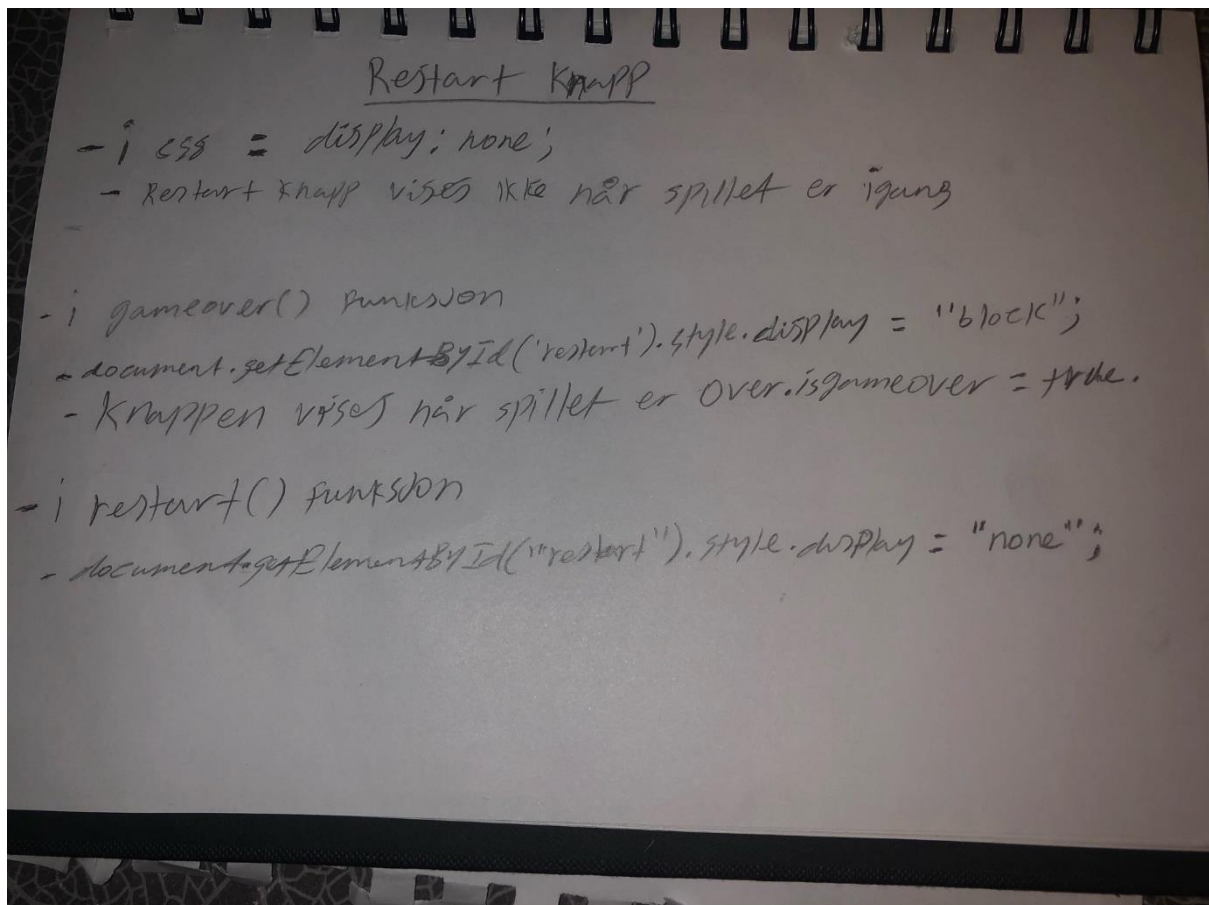 Restart Knapp
- i css = display: none;
- Restart Knapp vises ikke når spillet er igang
- i gameover() funksjon
- document.getElementById('restart').style.display = "block";
- Knappen vises når spillet er over.isgameover = true.
- i restart() funksjon
- document.getElementById("restart").style.display = "none";